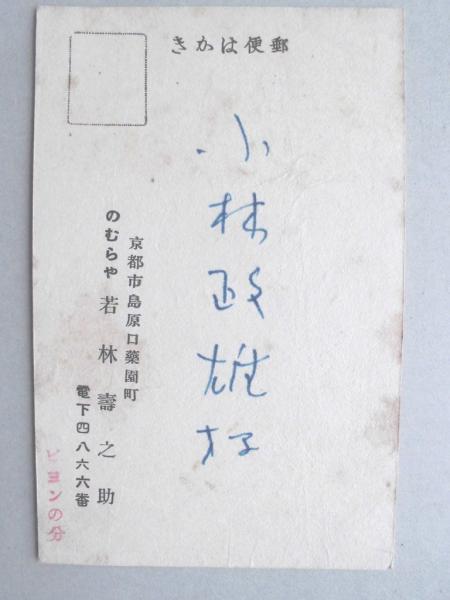 きかは便郵
小林政雄様
京都市島原口藥園町
のむらや 若林壽之助
電下四八六六番
ピヨンの分